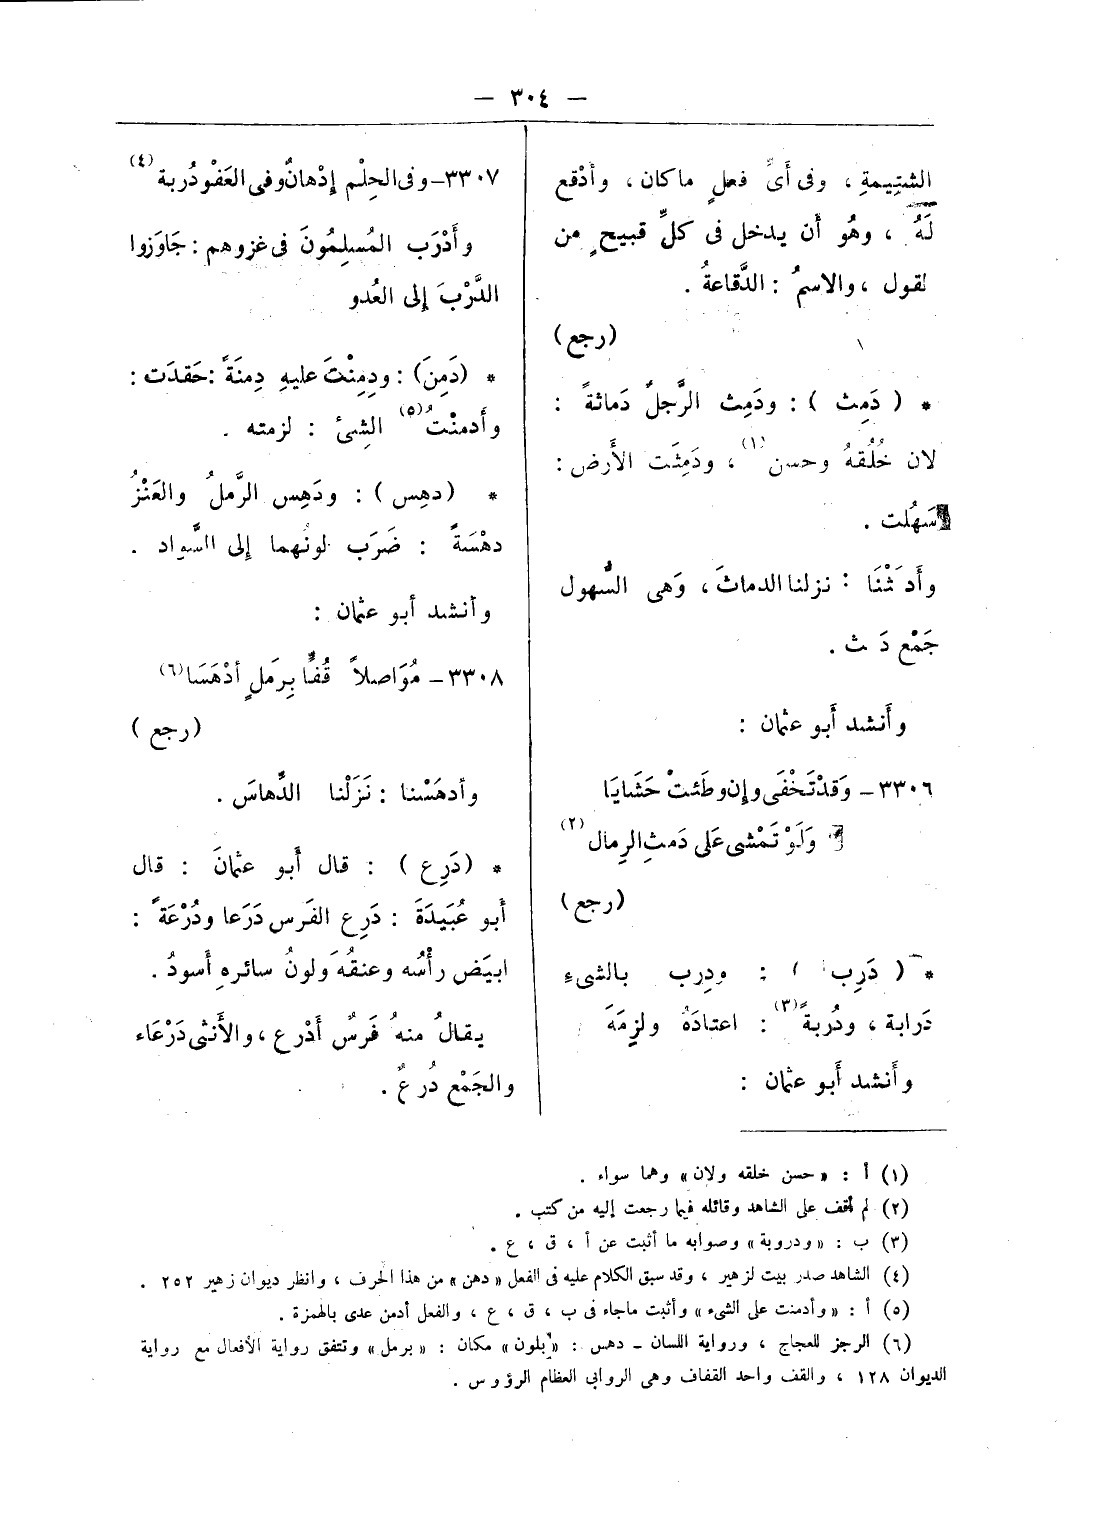 — ٣٠٤ —
الشتِيمةِ ، وفى أَىِّ فعلٍ ما كان ، وأدْقع
لَهُ ، وهُو أَن يدخل فى كلِّ قبيحٍ من
لقول ، والاسمُ : الدَّقاعةُ .
(رجع)
* ( دَمِث ) : ودَمِث الرَّجلُ دَماثةً :
لان خُلُقهُ وحسن (١) ، ودَمِثَت الأَرض :
سَهُلت .
وأَدَ ثْنَا : نزلنا الدماثَ ، وَهى السُّهول
جَمْع دَ ث .
وأَنشد أَبو عثمان :
٣٣٠٦ – وَقدْ تَخْفَى وإن وطَئتْ حَشَايَا
وَلَوْ تَمْشى عَلى دَمثِ الرِمال (٢)
(رجع)
* ( دَرِب ) : ودرِب بالشىءِ
دَرابة ، ودُربةً (٣) : اعتادَهُ ولزِمَهَ
وأَنشد أَبو عثمان :
٣٣٠٧ – وفى الحِلْم إِدْهانٌ وفى العَفْو دُربة (٤)
وأَدْرَب المُسلِمُونَ فى غزوهم : جَاوَزوا
الدَّرْبَ إِلى العُدو
* (دَمِنَ) : ودِمِنْتَ عليهِ دِمنَةً : حَقدَت :
وأَدمنْتُ (٥) الشِئ : لزمته .
* (دهِس ) : ودَهِس الرَّملُ والعَنْزُ
دهْسَةً : ضَرَب لونُهما إِلى السَّواد .
وأنشد أبو عثمان :
٣٣٠٨ – مُوَاصلاً قُفًّا بِرَملٍ أدْهَسَا (٦)
(رجع )
وأدهَسْنا : نَزَلْنا الدَّهاسَ .
* (دَرِع ) : قال أَبو عثمانَ : قال
أَبو عُبَيَدَةَ : دَرِع الفَرس دَرَعا ودُرْعَةً :
ابيَض رأْسُه وعنقُهَ ولونُ سائرهِ أَسودُ .
يقالُ منهُ فَرسٌ أَدْرع ، والأَنثى دَرْعَاء
والجَمْع دُرعٌ .
(١) أ : «حسن خلقه ولان» وهما سواء .
(٢) لم أقف على الشاهد وقائله فيما رجعت إليه من كتب .
(٣) ب : «ودروبة» وصوابه ما أثبت عن أ ، ق ، ع .
(٤) الشاهد صدر بيت لزهير ، وقد سبق الكلام عليه فى الفعل «دهن» من هذا الحرف ، وانظر ديوان زهير ٢٥٢ .
(٥) أ : «وأدمنت على الشىء» وأثبت ماجاء فى ب ، ق ، ع ، والفعل أدمن عدى بالهمزة .
(٦) الرجز للعجاج ، ورواية اللسان – دهس : «بلون» مكان : «برمل» وتتفق رواية الأفعال مع رواية
الديوان ١٢٨ ، والقف واحد القفاف وهى الروابى العظام الرؤوس .